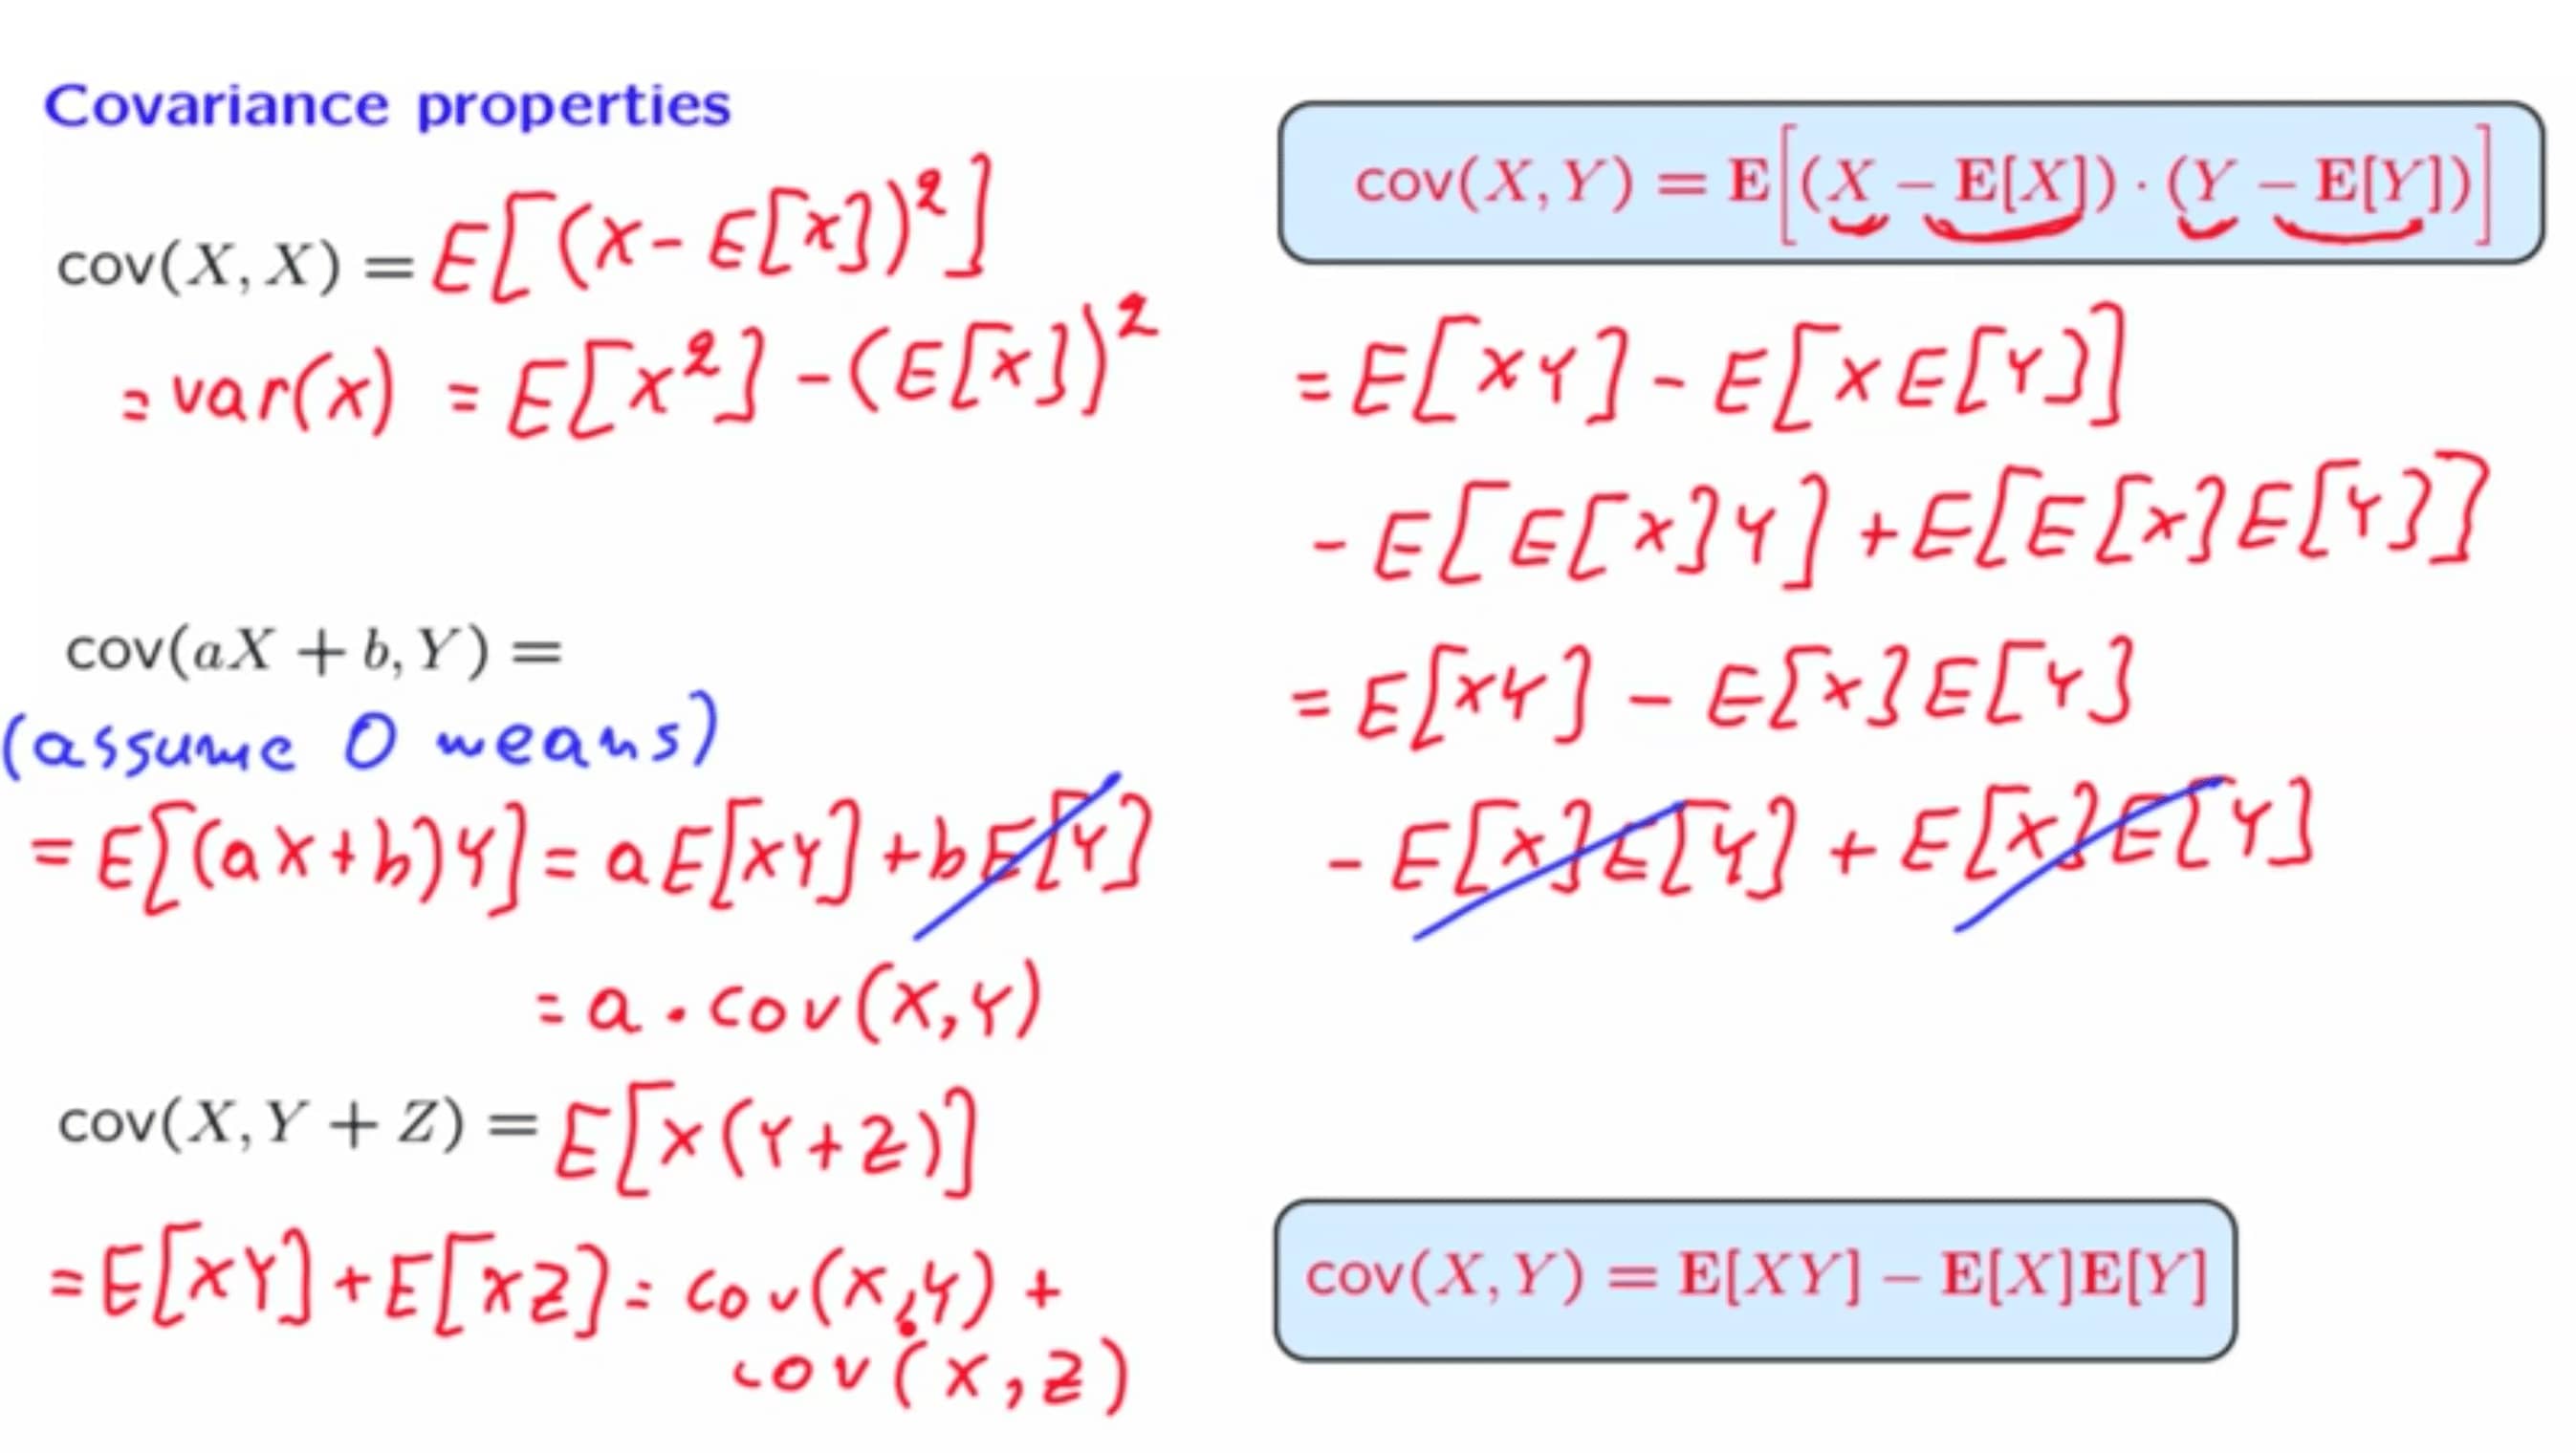 Covariance properties
cov(X, X) = E[(X - E[X])²]
= var(X) = E[X²] - (E[X])²
cov(aX + b, Y) =
(assume 0 means)
= E[(aX+b)Y] = aE[XY] + bE[Y]
= a · cov(X,Y)
cov(X, Y + Z) = E[X(Y+Z)]
= E[XY] + E[XZ] = cov(X,Y) +
cov(X,Z)
cov(X, Y) = E[(X - E[X]) · (Y - E[Y])]
= E[XY] - E[XE[Y]]
- E[E[X]Y] + E[E[X]E[Y]]
= E[XY] - E[X]E[Y]
- E[X]E[Y] + E[X]E[Y]
cov(X, Y) = E[XY] - E[X]E[Y]